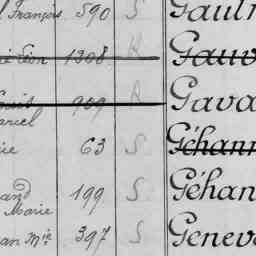 François 590 S Gaul
Léon 1308 R Gauv
Louis 909 R Gava
Marcel
63 S Géhan
199 S Géhan
Marie
Mie 397 S Genev